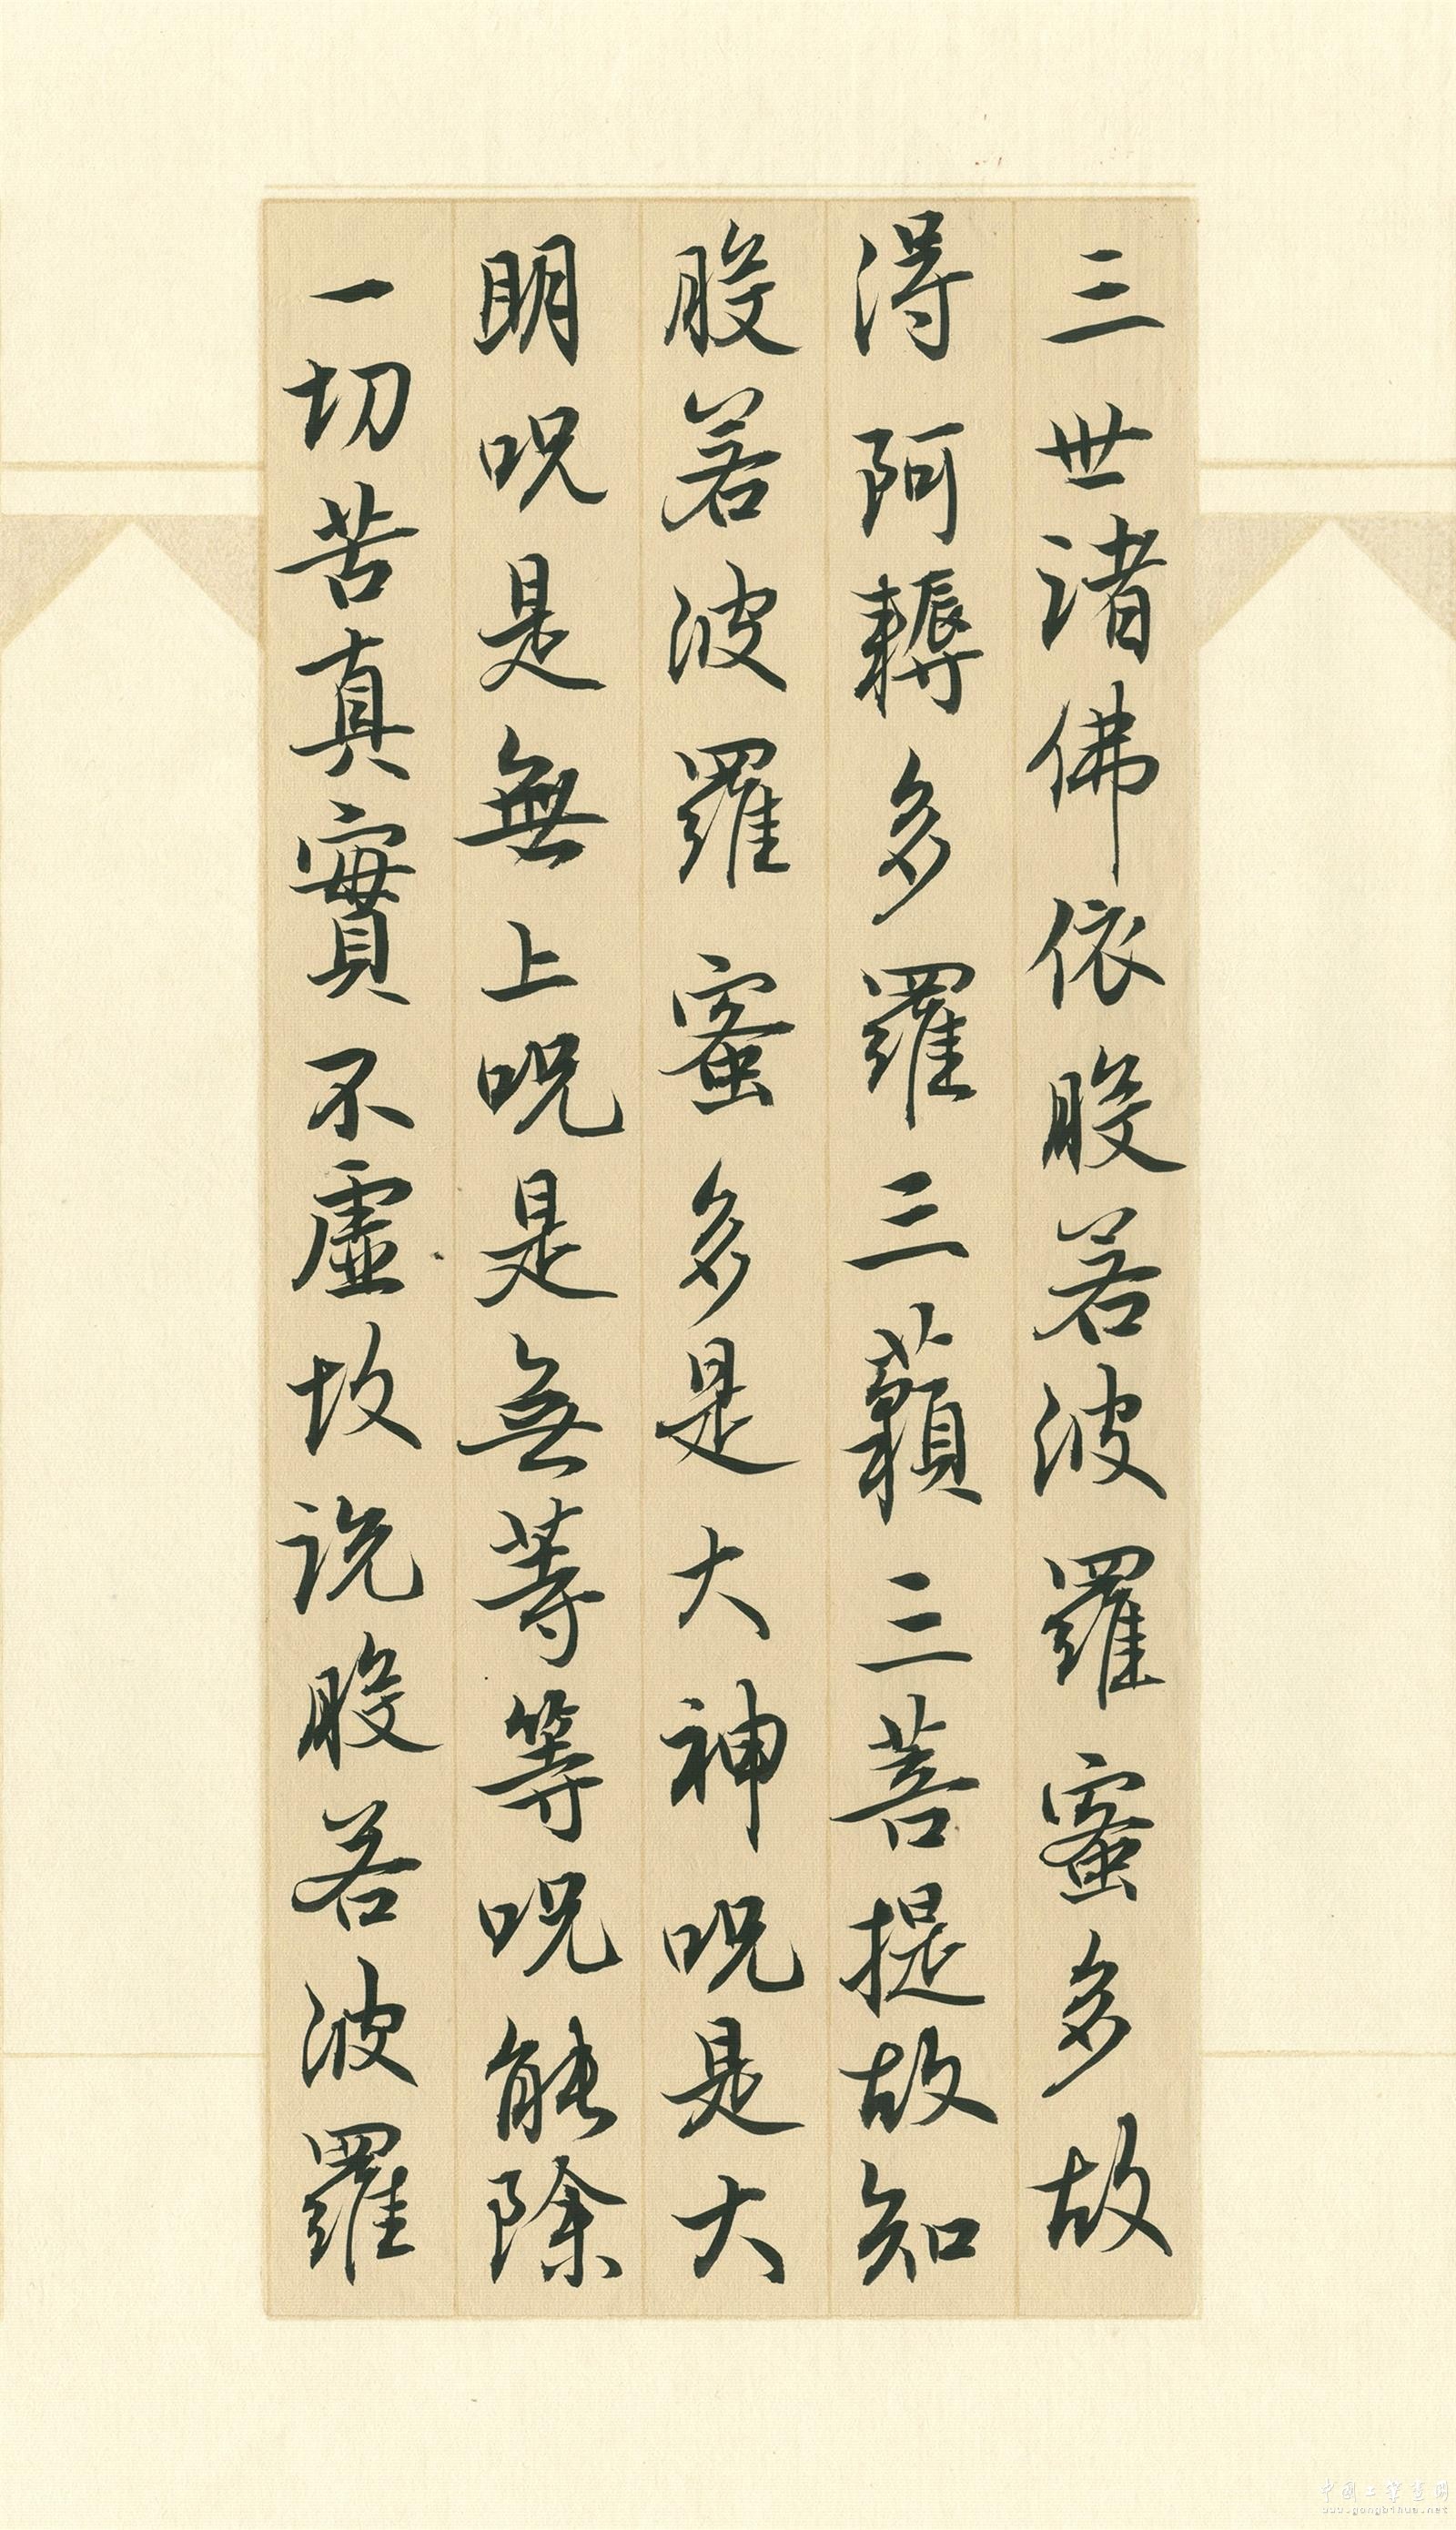 三世諸佛依般若波羅蜜多故
得阿耨多羅三藐三菩提故知
般若波羅蜜多是大神呪是大
明呪是無上呪是無等等呪能除
一切苦真實不虛故説般若波羅
中国工笔画网
www.gongbihua.net